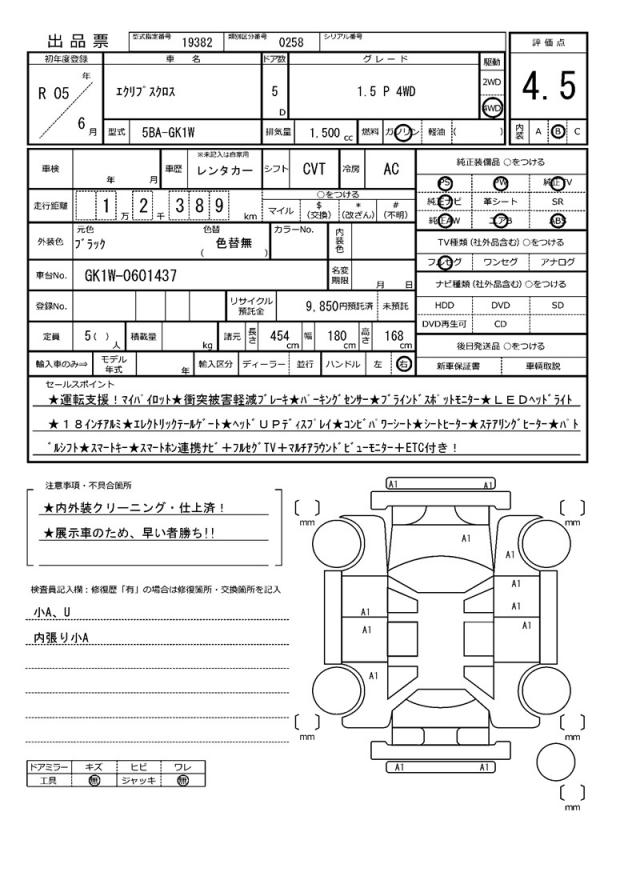 出品票 型式指定番号 19382 類別区分番号 0258 シリアル番号
評価点
4.5
内装 A B C
初年度登録 車名 ドア数 グレード 駆動
R 05 年 6 月 エクリプスクロス 5 D 1.5 P 4WD 2WD 4WD
型式 5BA-GK1W 排気量 1.500 cc 燃料 ガソリン 軽油 ( )
車検 年 月 車歴 ※未記入は自家用 レンタカー シフト CVT 冷房 AC
走行距離 1 万 2 千 3 8 9 km ○をつける
マイル $ (交換) * (改ざん) # (不明)
外装色 元色 ブラック 色替 ( 色替無 ) カラーNo. 内装色
車台No. GK1W-0601437 名変期限 月 日
登録No. リサイクル預託金 9,850円預託済 未預託
定員 5( ) 人 積載量 kg 諸元 長さ 454 cm 幅 180 cm 高さ 168 cm
輸入車のみ⇒ モデル年式 年 輸入区分 ディーラー 並行 ハンドル 左 右
純正装備品 ○をつける
PS PW 純正TV
純正ナビ 革シート SR
純正AW エアB ABS
TV種類(社外品含む)○をつける
フルセグ ワンセグ アナログ
ナビ種類(社外品含む)○をつける
HDD DVD SD
DVD再生可 CD
後日発送品 ○をつける
新車保証書 車輌取説
セールスポイント
★運転支援！マイパイロット★衝突被害軽減ブレーキ★パーキングセンサー★ブラインドスポットモニター★ＬＥＤヘッドライト
★１８インチアルミ★エレクトリックテールゲート★ヘッドＵＰディスプレイ★コンビパワーシート★シートヒーター★ステアリングヒーター★パド
ルシフト★スマートキー★スマートホン連携ナビ＋フルセグTV＋マルチアラウンドビューモニター＋ETC付き！
注意事項・不具合箇所
★内外装クリーニング・仕上済！
★展示車のため、早い者勝ち!!
検査員記入欄：修復歴「有」の場合は修復箇所・交換箇所を記入
小A、U
内張り小A
ドアミラー キズ ヒビ ワレ
工具 無 ジャッキ 無
A1 A1
mm mm
A1
A1
A1
A1 A1
A1 A1
A1
mm mm
A1 A1
mm